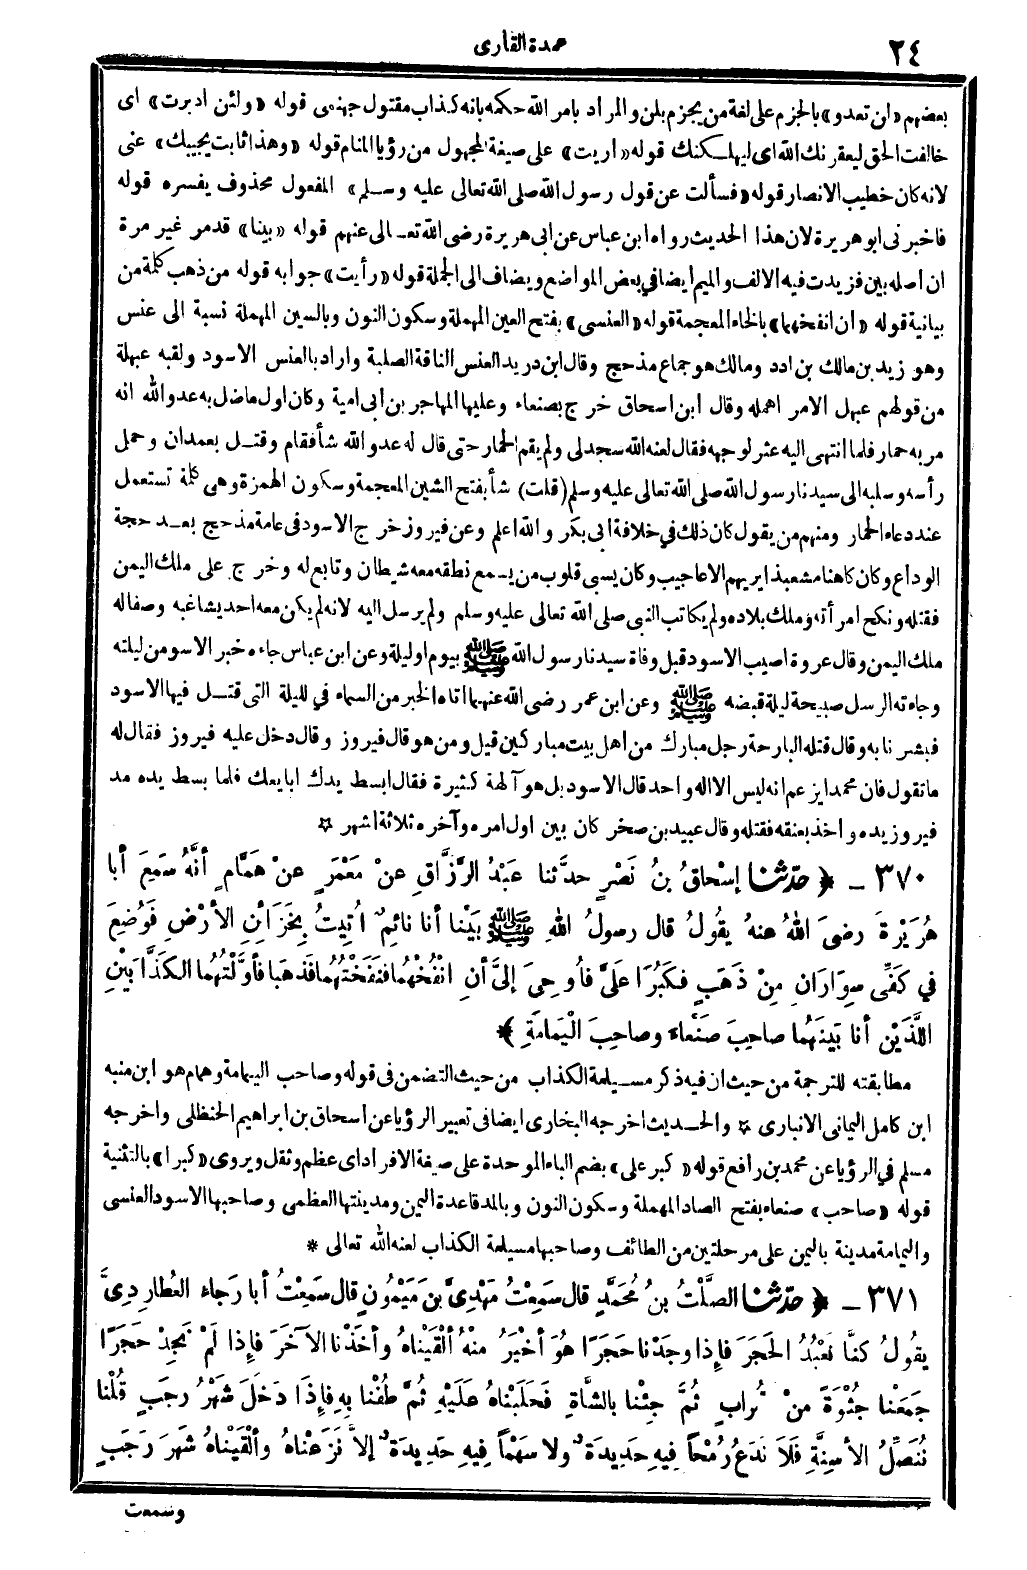 ٢٤
عمدة القارى
بعضهم «ان تعدو» بالجزم على لغة من يجزم بلن والمراد بامر الله حكمه بانه كذاب مقتول جهنمى قوله «ولئن ادبرت» اى
خالفت الحق ليعقرنك الله اى ليهلكنك قوله «اريت» على صيغة المجهول من رؤيا المنام قوله «وهذا ثابت يجيبك» عنى
لانه كان خطيب الانصار قوله «فسألت عن قول رسول الله صلى الله تعالى عليه وسلم» المفعول محذوف يفسره قوله
فاخبرنى ابو هريرة لان هذا الحديث رواه ابن عباس عن ابى هريرة رضى الله تعالى عنهم قوله «بينا» قدمر غير مرة
ان اصله بين فزيدت فيه الالف والميم ايضا في بعض المواضع ويضاف الى الجملة قوله «رأيت» جوابه قوله من ذهب كلمة من
بيانية قوله «ان انفخهما» بالخاء المعجمة قوله «العنسى» بفتح العين المهملة وسكون النون وبالسين المهملة نسبة الى عنس
وهو زيد بن مالك بن ادد ومالك هو جماع مذحج وقال ابن دريد العنس الناقة الصلبة واراد بالعنس الاسود ولقبه عبهلة
من قولهم عبهل الامر اهمله وقال ابن اسحاق خرج بصنعاء وعليها المهاجر بن ابى امية وكان اول ماضل به عدو الله انه
مر به حمار فلما انتهى اليه عثر لوجهه فقال لعنه الله سجد لى ولم يقم الحمار حتى قال له عدو الله شأ فقام وقتل بعمدان وحمل
رأسه وسلبه الى سيدنا رسول الله صلى الله تعالى عليه وسلم (قلت) شأ بفتح الشين المعجمة وسكون الهمزة وهى كلمة تستعمل
عند دعاء الحمار ومنهم من يقول كان ذلك في خلافة ابى بكر والله اعلم وعن فيروز خرج الاسود فى عامة مذحج بعد حجة
الوداع وكان كاهنا مشعبذا يريهم الاعاجيب وكان يسبى قلوب من يسمع نطقه معه شيطان وتابع له وخرج على ملك اليمن
فقتله ونكح امرأته وملك بلاده ولم يكاتب النبى صلى الله تعالى عليه وسلم ولم يرسل اليه لانه لم يكن معه احد يشاغبه وصفاله
ملك اليمن وقال عروة اصيب الاسود قبل وفاة سيدنا رسول الله ﷺ بيوم او ليلة وعن ابن عباس جاءه خبر الاسو من ليلته
وجاءته الرسل صبيحة ليلة قبضه ﷺ وعن ابن عمر رضى الله عنهما اتاه الخبر من السماء في لليلة التى قتل فيها الاسود
فبشرنا به وقال قتله البارحة رجل مبارك من اهل بيت مباركين قيل ومن هو قال فيروز وقال دخل عليه فيروز فقال له
ماتقول فان محمدا يزعم انه ليس الا اله واحد قال الاسود بل هو آلهة كثيرة فقال ابسط يدك ابايعك فلما بسط يده مد
فيروز يده واخذ بعنقه فقتله وقال عبيد بن صخر كان بين اول امره وآخره ثلاثة اشهر ☆
٣٧٠ ـ ﴿ حدّثنا إسْحاقُ بنُ نَصْرٍ حدَّثنا عَبْدُ الرَّزَّاقِ عنْ مَعْمَرٍ عنْ هَمَّامٍ أنَّهُ سَمِعَ أبا
هُرَيْرةَ رضىَ اللهُ عنهُ يقُولُ قال رسولُ اللهِ ﷺ بَيْنا أنا نائِمٌ اُتِيتُ بِخَزَائِنِ الأرْضِ فَوُضِعَ
في كَفِّى سِوَارَانِ مِنْ ذَهَبٍ فكَبُرَا علَىَّ فأُوحِىَ إلىَّ أنِ انْفُخْهُما فنَفَخْتُهُما فَذَهَبا فأوَّلْتُهُما الكَذَّابَيْنِ
اللَّذَيْنِ أنا بَيْنَهُما صاحِبَ صَنْعاءَ وصاحِبَ الْيَمامَةِ ﴾
مطابقته للترجمة من حيث ان فيه ذكر مسيلمة الكذاب من حيث التضمن فى قوله وصاحب اليمامة وهمام هو ابن منبه
ابن كامل اليمانى الانبارى ☆ والحديث اخرجه البخارى ايضا فى تعبير الرؤيا عن اسحاق بن ابراهيم الحنظلى واخرجه
مسلم في الرؤيا عن محمد بن رافع قوله «كبر على» بضم الباء الموحدة على صيغة الافراد اى عظم وثقل ويروى «كبرا» بالتثنية
قوله «صاحب» صنعاء بفتح الصاد المهملة وسكون النون وبالمد قاعدة اليمن ومدينتها العظمى وصاحبها الاسود العنسى
واليمامة مدينة باليمن على مرحلتين من الطائف وصاحبها مسيلمة الكذاب لعنه الله تعالى *
٣٧١ ـ ﴿ حدّثنا الصَّلْتُ بنُ مُحَمَّدٍ قال سَمِعْتُ مَهْدِىَّ بنَ مَيْمُونٍ قال سَمِعْتُ أبا رَجاءٍ العُطارِدِىَّ
يقُولُ كنَّا نَعْبُدُ الحَجَرَ فإذا وجَدْنا حَجَرًا هُوَ أخْيَرُ مِنْهُ ألْقَيْناهُ وأخَذْنا الآخَرَ فإذا لَمْ نَجِدْ حَجَرًا
جَمَعْنا جُثْوَةً مِنْ تُرابٍ ثُمَّ جِئْنا بالشَّاةِ فَحلَبْناهُ عَلَيْهِ ثُمَّ طُفْنا بِهِ فإذَا دَخَلَ شَهْرُ رجَبٍ قُلْنا
نُنَصِّلُ الأسِنَّةِ فَلاَ نَدَعُ رُمْحًا فِيهِ حَدِيدَةٌ ولا سَهْماً فِيهِ حَدِيدَةٌ إلاَّ نَزَعْناهُ وألْقَيْناهُ شَهْرَ رَجَبٍ
وسمعت